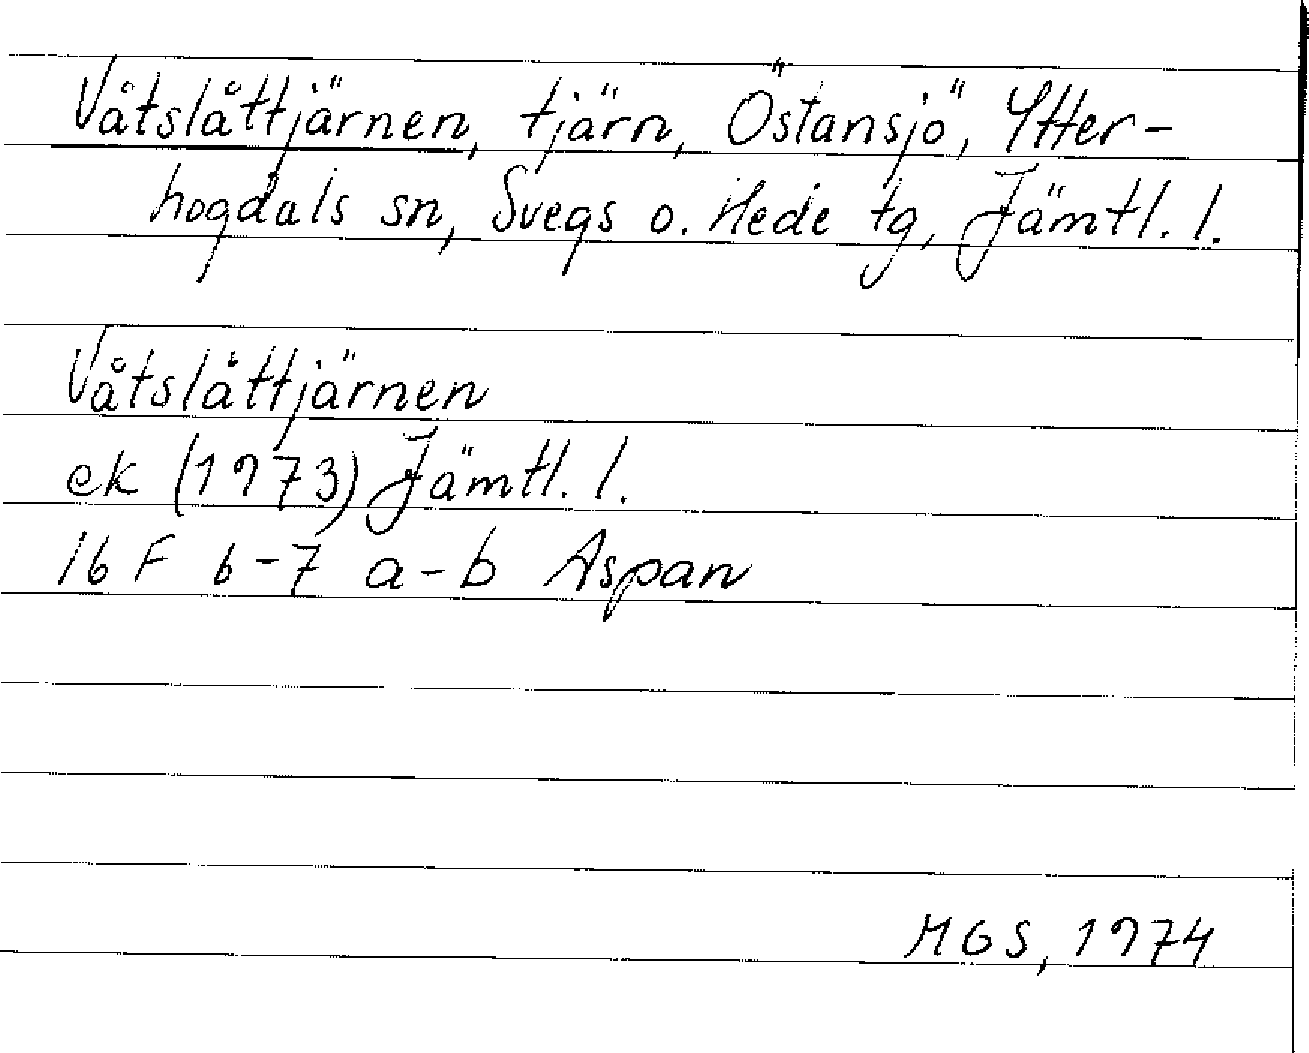 Våtslåttjärnen, tjärn, Östansjö, Ytter-
hogdals sn, Svegs o. Hede tg, Jämtl. l.
Våtslåttjärnen
ek (1973) Jämtl. l.
16 F 6-7 a-b Aspan
MGS, 1974